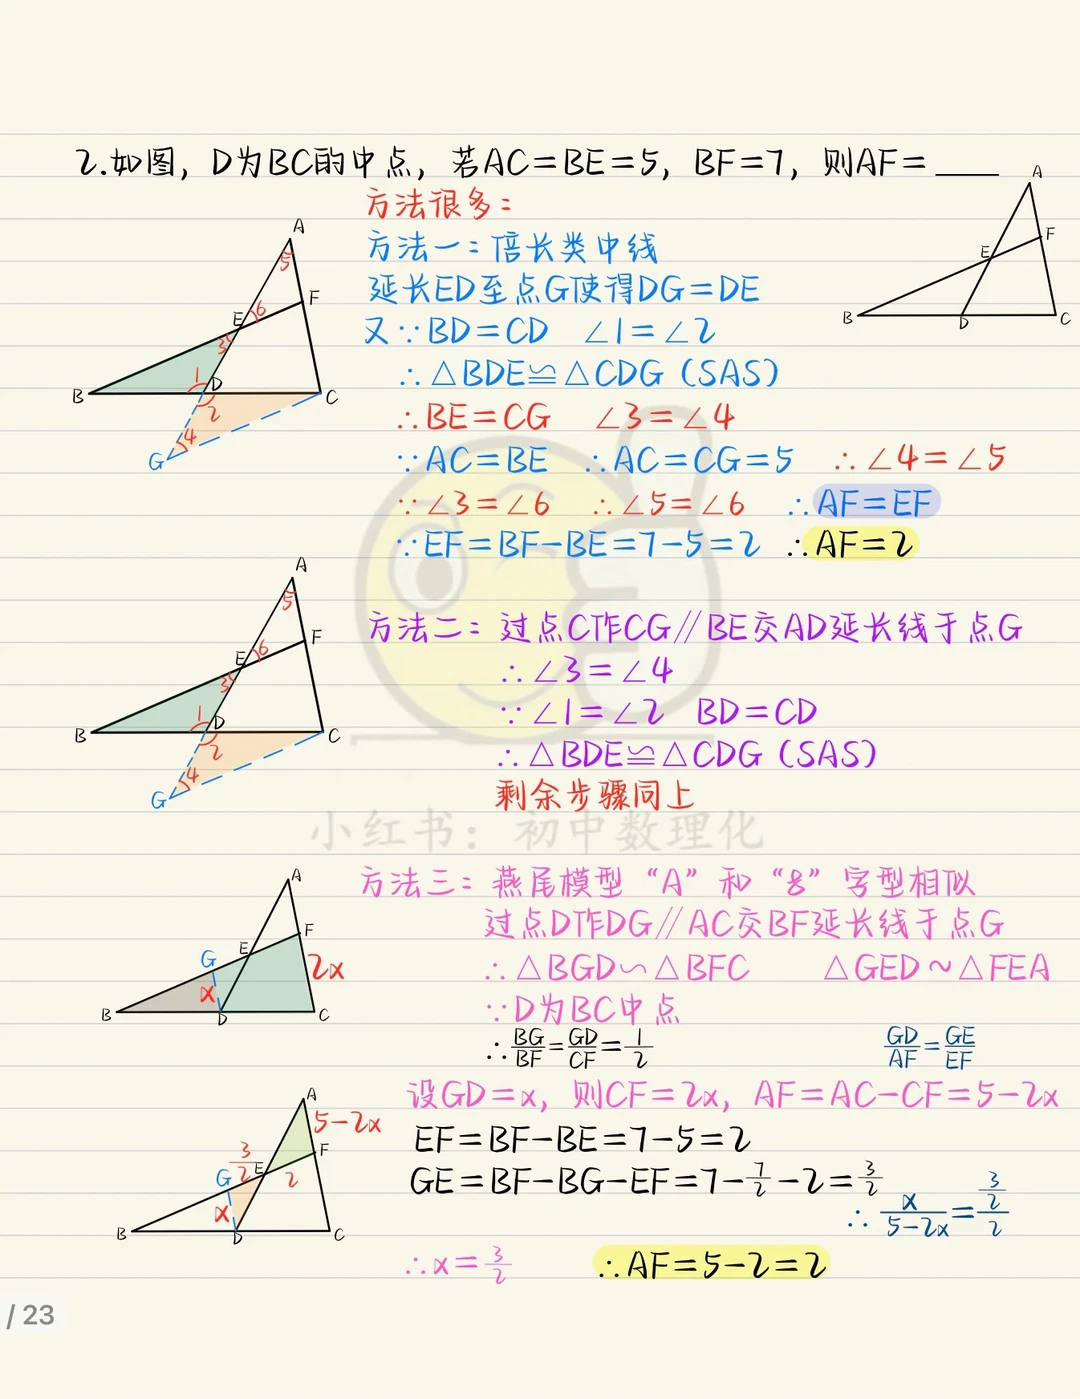 2.如图，D为BC的中点，若AC=BE=5，BF=7，则AF=____
方法很多：
方法一：倍长类中线
延长ED至点G使得DG=DE
又∵BD=CD ∠1=∠2
∴△BDE≌△CDG（SAS）
∴BE=CG ∠3=∠4
∵AC=BE ∴AC=CG=5 ∴∠4=∠5
∵∠3=∠6 ∴∠5=∠6 ∴AF=EF
∵EF=BF-BE=7-5=2 ∴AF=2
A
F
E
B
D
C
A
5
F
E
6
3
1
D
B
2
C
4
G
方法二：过点C作CG∥BE交AD延长线于点G
∴∠3=∠4
∵∠1=∠2 BD=CD
∴△BDE≌△CDG（SAS）
剩余步骤同上
A
5
F
E
6
3
1
D
B
2
C
4
G
小红书：初中数理化
方法三：燕尾模型“A”和“8”字型相似
过点D作DG∥AC交BF延长线于点G
∴△BGD∽△BFC △GED~△FEA
∵D为BC中点
∴BG/BF=GD/CF=1/2 GD/AF=GE/EF
A
F
E
G
2x
x
B
D
C
设GD=x，则CF=2x，AF=AC-CF=5-2x
EF=BF-BE=7-5=2
GE=BF-BG-EF=7-7/2-2=3/2
∴x/(5-2x)=(3/2)/2
∴x=3/2 ∴AF=5-2=2
A
5-2x
F
3/2
E
G
2
x
B
D
C
/ 23